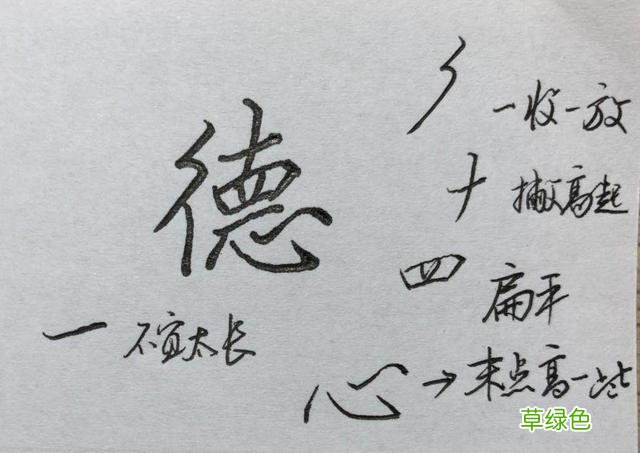 德
一收一放
十 撇高起
四 扁平
一 不宜太长
心→末点高一些
草绿色